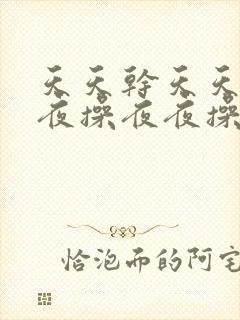 天天幹天天
夜操夜夜操
恰泡而的阿宅